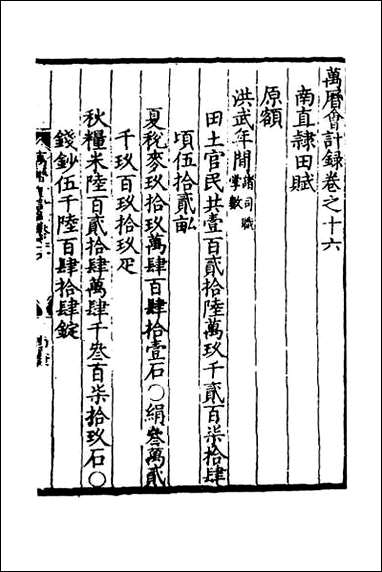 萬曆會計録卷之十六
南直隷田賦
原額
洪武年間諸司職掌數
田土官民共壹百貳拾陸萬玖千貳百柒拾肆
頃伍拾貳畆
夏稅麥玖拾玖萬肆百肆拾壹石〇絹叁萬貳
千玖百玖拾玖疋
秋糧米陸百貳拾肆萬肆千叁百柒拾玖石〇
錢鈔伍千陸百肆拾肆錠